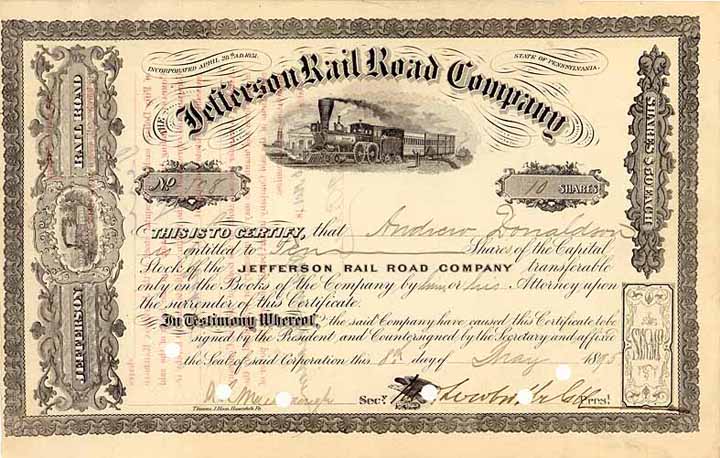 INCORPORATED APRIL 28th A.D. 1851.
STATE OF PENNSYLVANIA.
THE
Jefferson Rail Road Company
No
10 SHARES
THIS IS TO CERTIFY, that Andrew Donaldson
entitled to Ten Shares of the Capital
Stock of the JEFFERSON RAIL ROAD COMPANY transferable
only on the Books of the Company by him or his Attorney upon
the surrender of this Certificate.
In Testimony Whereof, the said Company have caused this Certificate to be
signed by the President and Countersigned by the Secretary and affixed
the Seal of said Corporation this 8th day of May
Secy.
Prest.
JEFFERSON
RAIL ROAD
SHARES $50 EACH